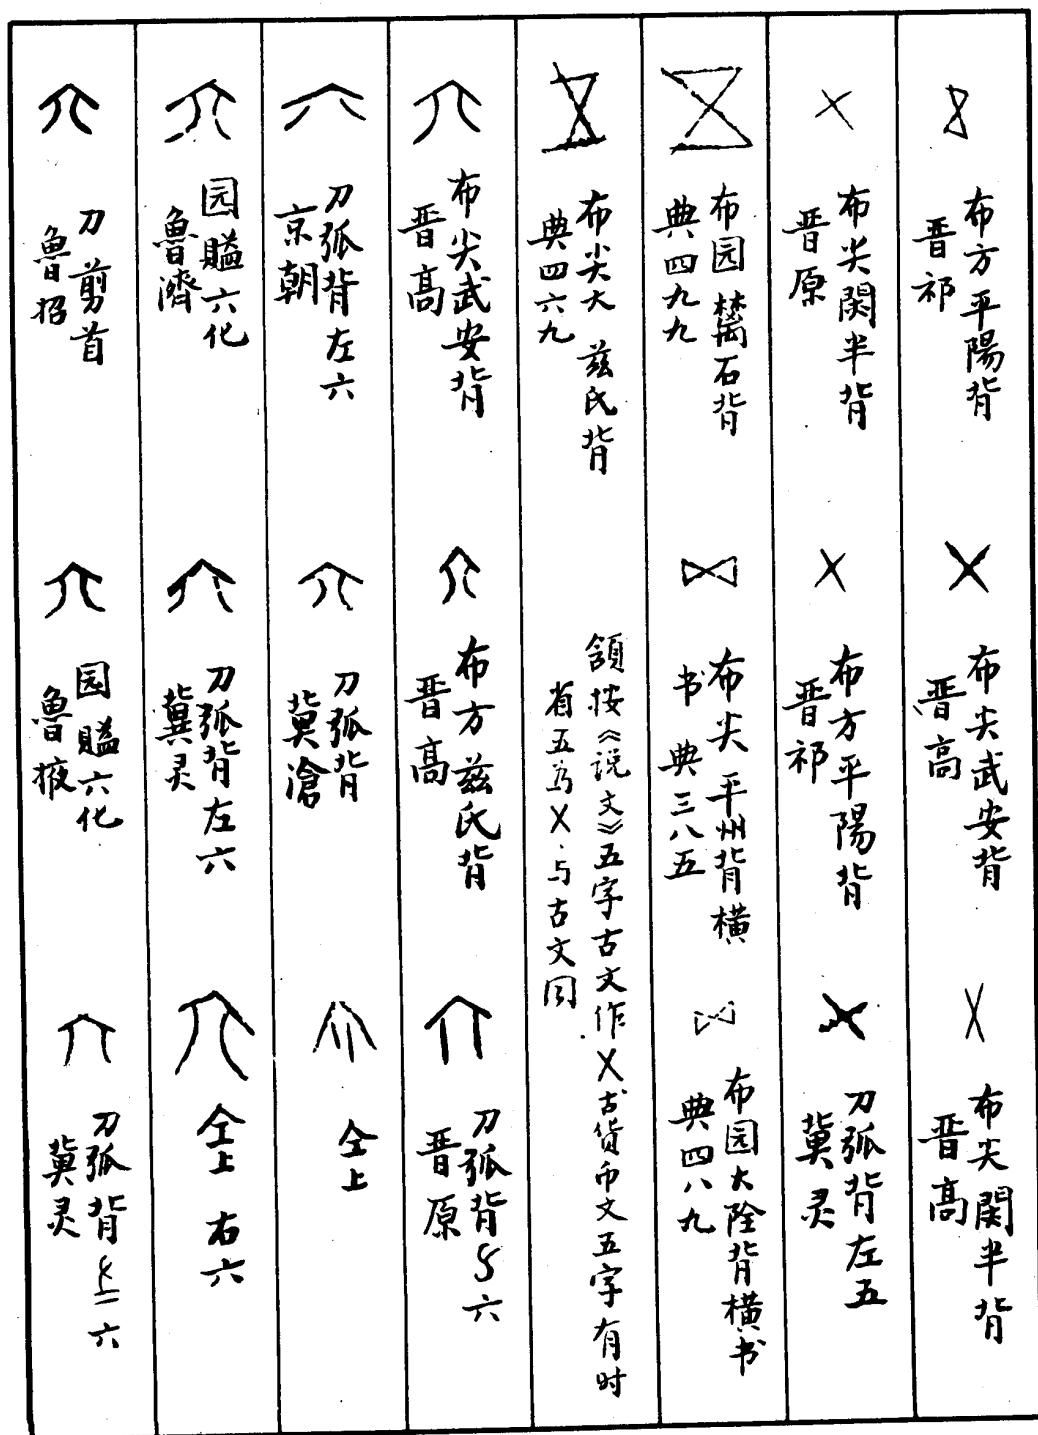 布方平陽背
晋祁
布尖武安背
晋高
布尖関半背
晋高
布尖関半背
晋原
布方平陽背
晋祁
刀弧背左五
冀灵
布园 蔺石背
典四九九
布尖 平州背横
书 典三八五
布园大陰背横书
典四八九
布尖大 兹氏背
典四六九
頷按《说文》五字古文作X古货币文五字有时
省五为X与古文同
布尖武安背
晋高
布方兹氏背
晋高
刀弧背 六
晋原
刀弧背左六
京朝
刀弧背
冀滄
仝上
园賹六化
魯濟
刀弧背左六
冀灵
仝上 右六
刀 剪首
魯招
园賹六化
魯掖
刀弧背 六
冀灵